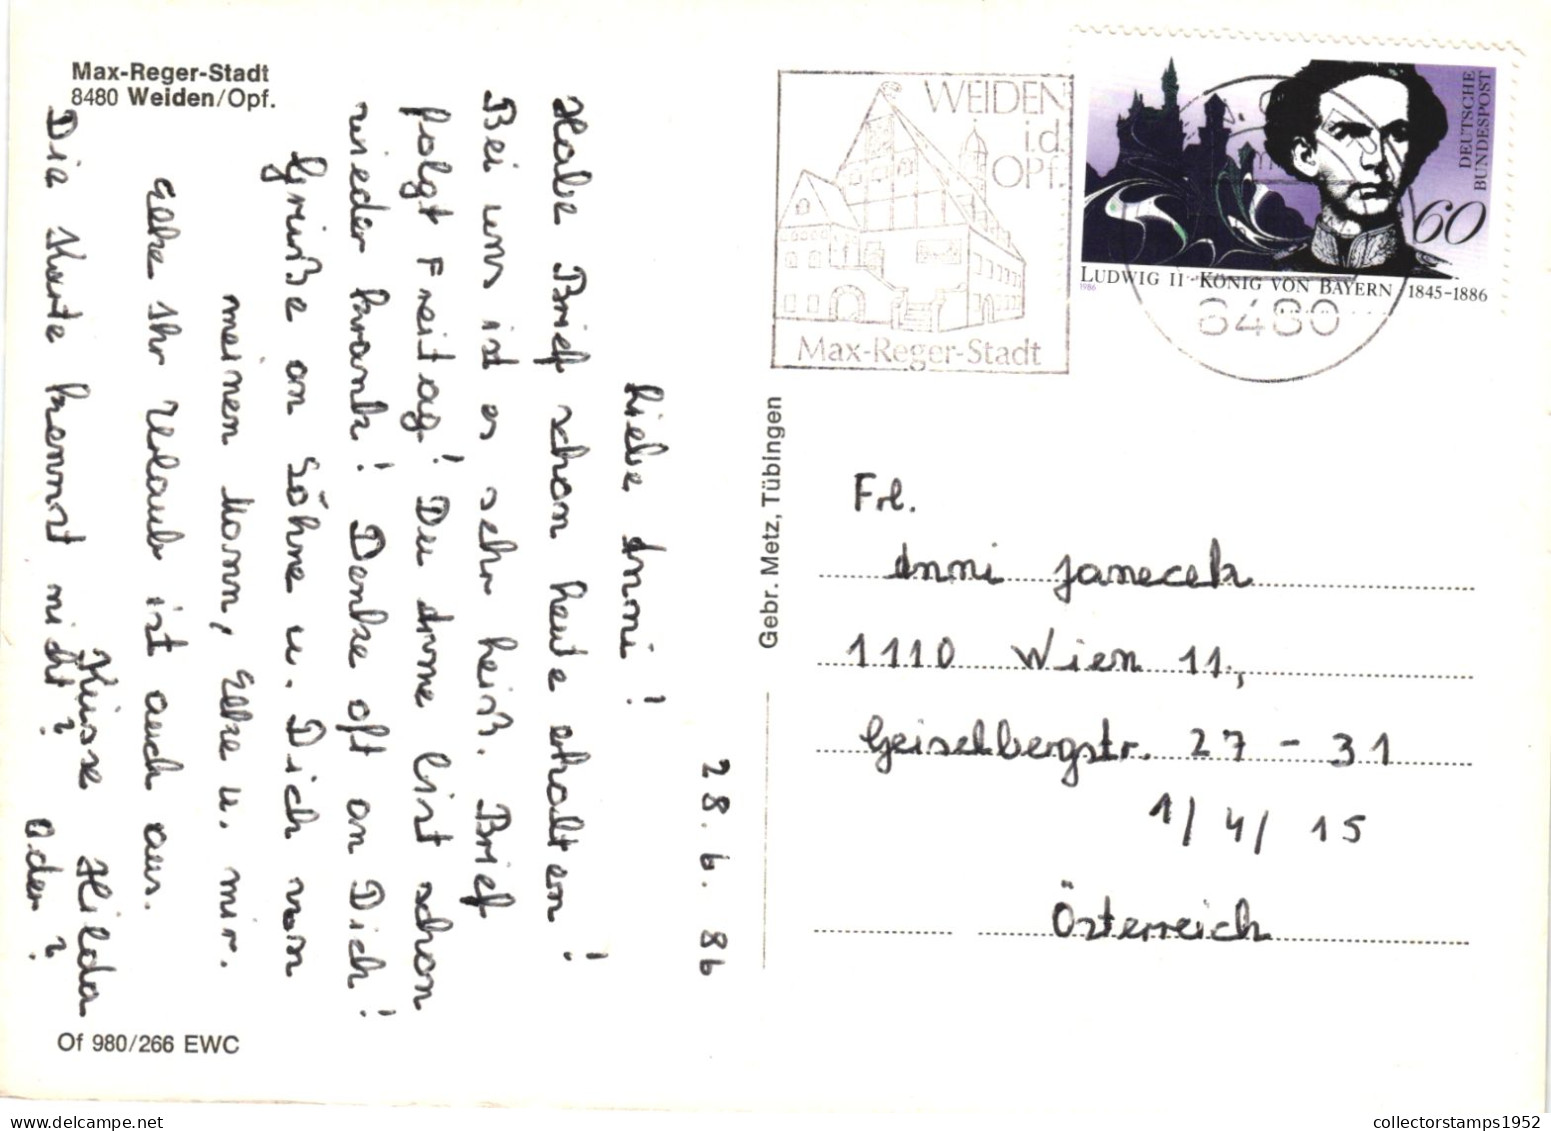 Max-Reger-Stadt
8480 Weiden/Opf.
28. 6. 86
Liebe Anni!
Habe Brief schon heute erhalten!
Bei uns ist es sehr heiß. Brief
folgt Freitag! Du Arme bist schon
wieder krank! Denke oft an Dich!
Grüße an Söhne u. Dich von
meinen Mann, Elke u. mir.
Elke Ihr Urlaub ist auch aus.
Küsse Hilda
Die Karte kennst nicht?
Oder?
Of 980/266 EWC
Gebr. Metz, Tübingen
WEIDEN
i.d.
OPf.
Max-Reger-Stadt
8480
DEUTSCHE
BUNDESPOST
60
LUDWIG II · KÖNIG VON BAYERN · 1845-1886
1986
Frl.
Anni Janecek
1110 Wien 11,
Geiselbergstr. 27 - 31
1/ 4/ 15
Österreich
collectorstamps1952